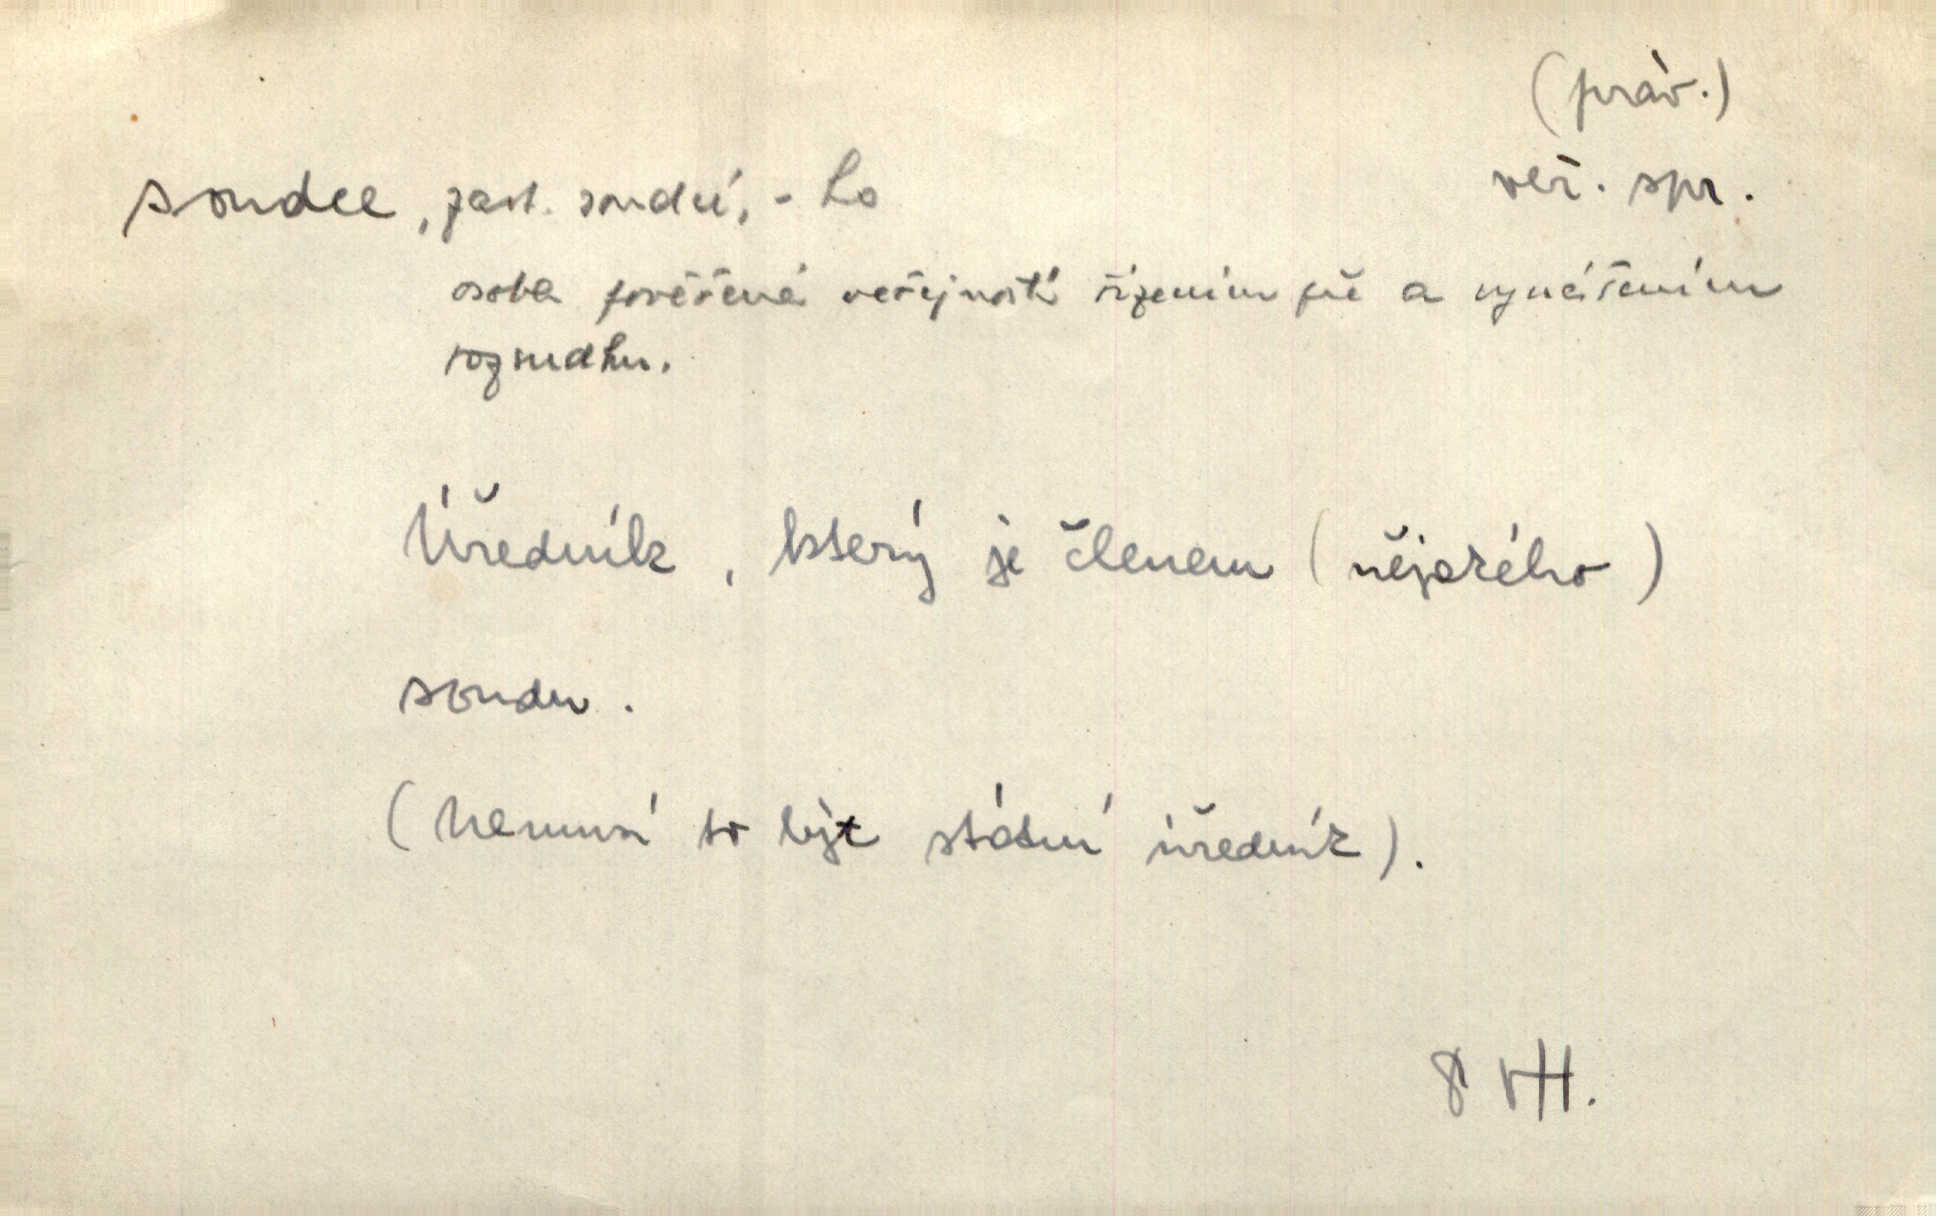 (práv.)
soudce, zast. soudcí, -ho
veř. spr.
osoba pověřená veřejností řízením pře a vynášením
rozsudku.
Úředník, který je členem (nějakého)
soudu.
(nemusí to být státní úředník).
VH.